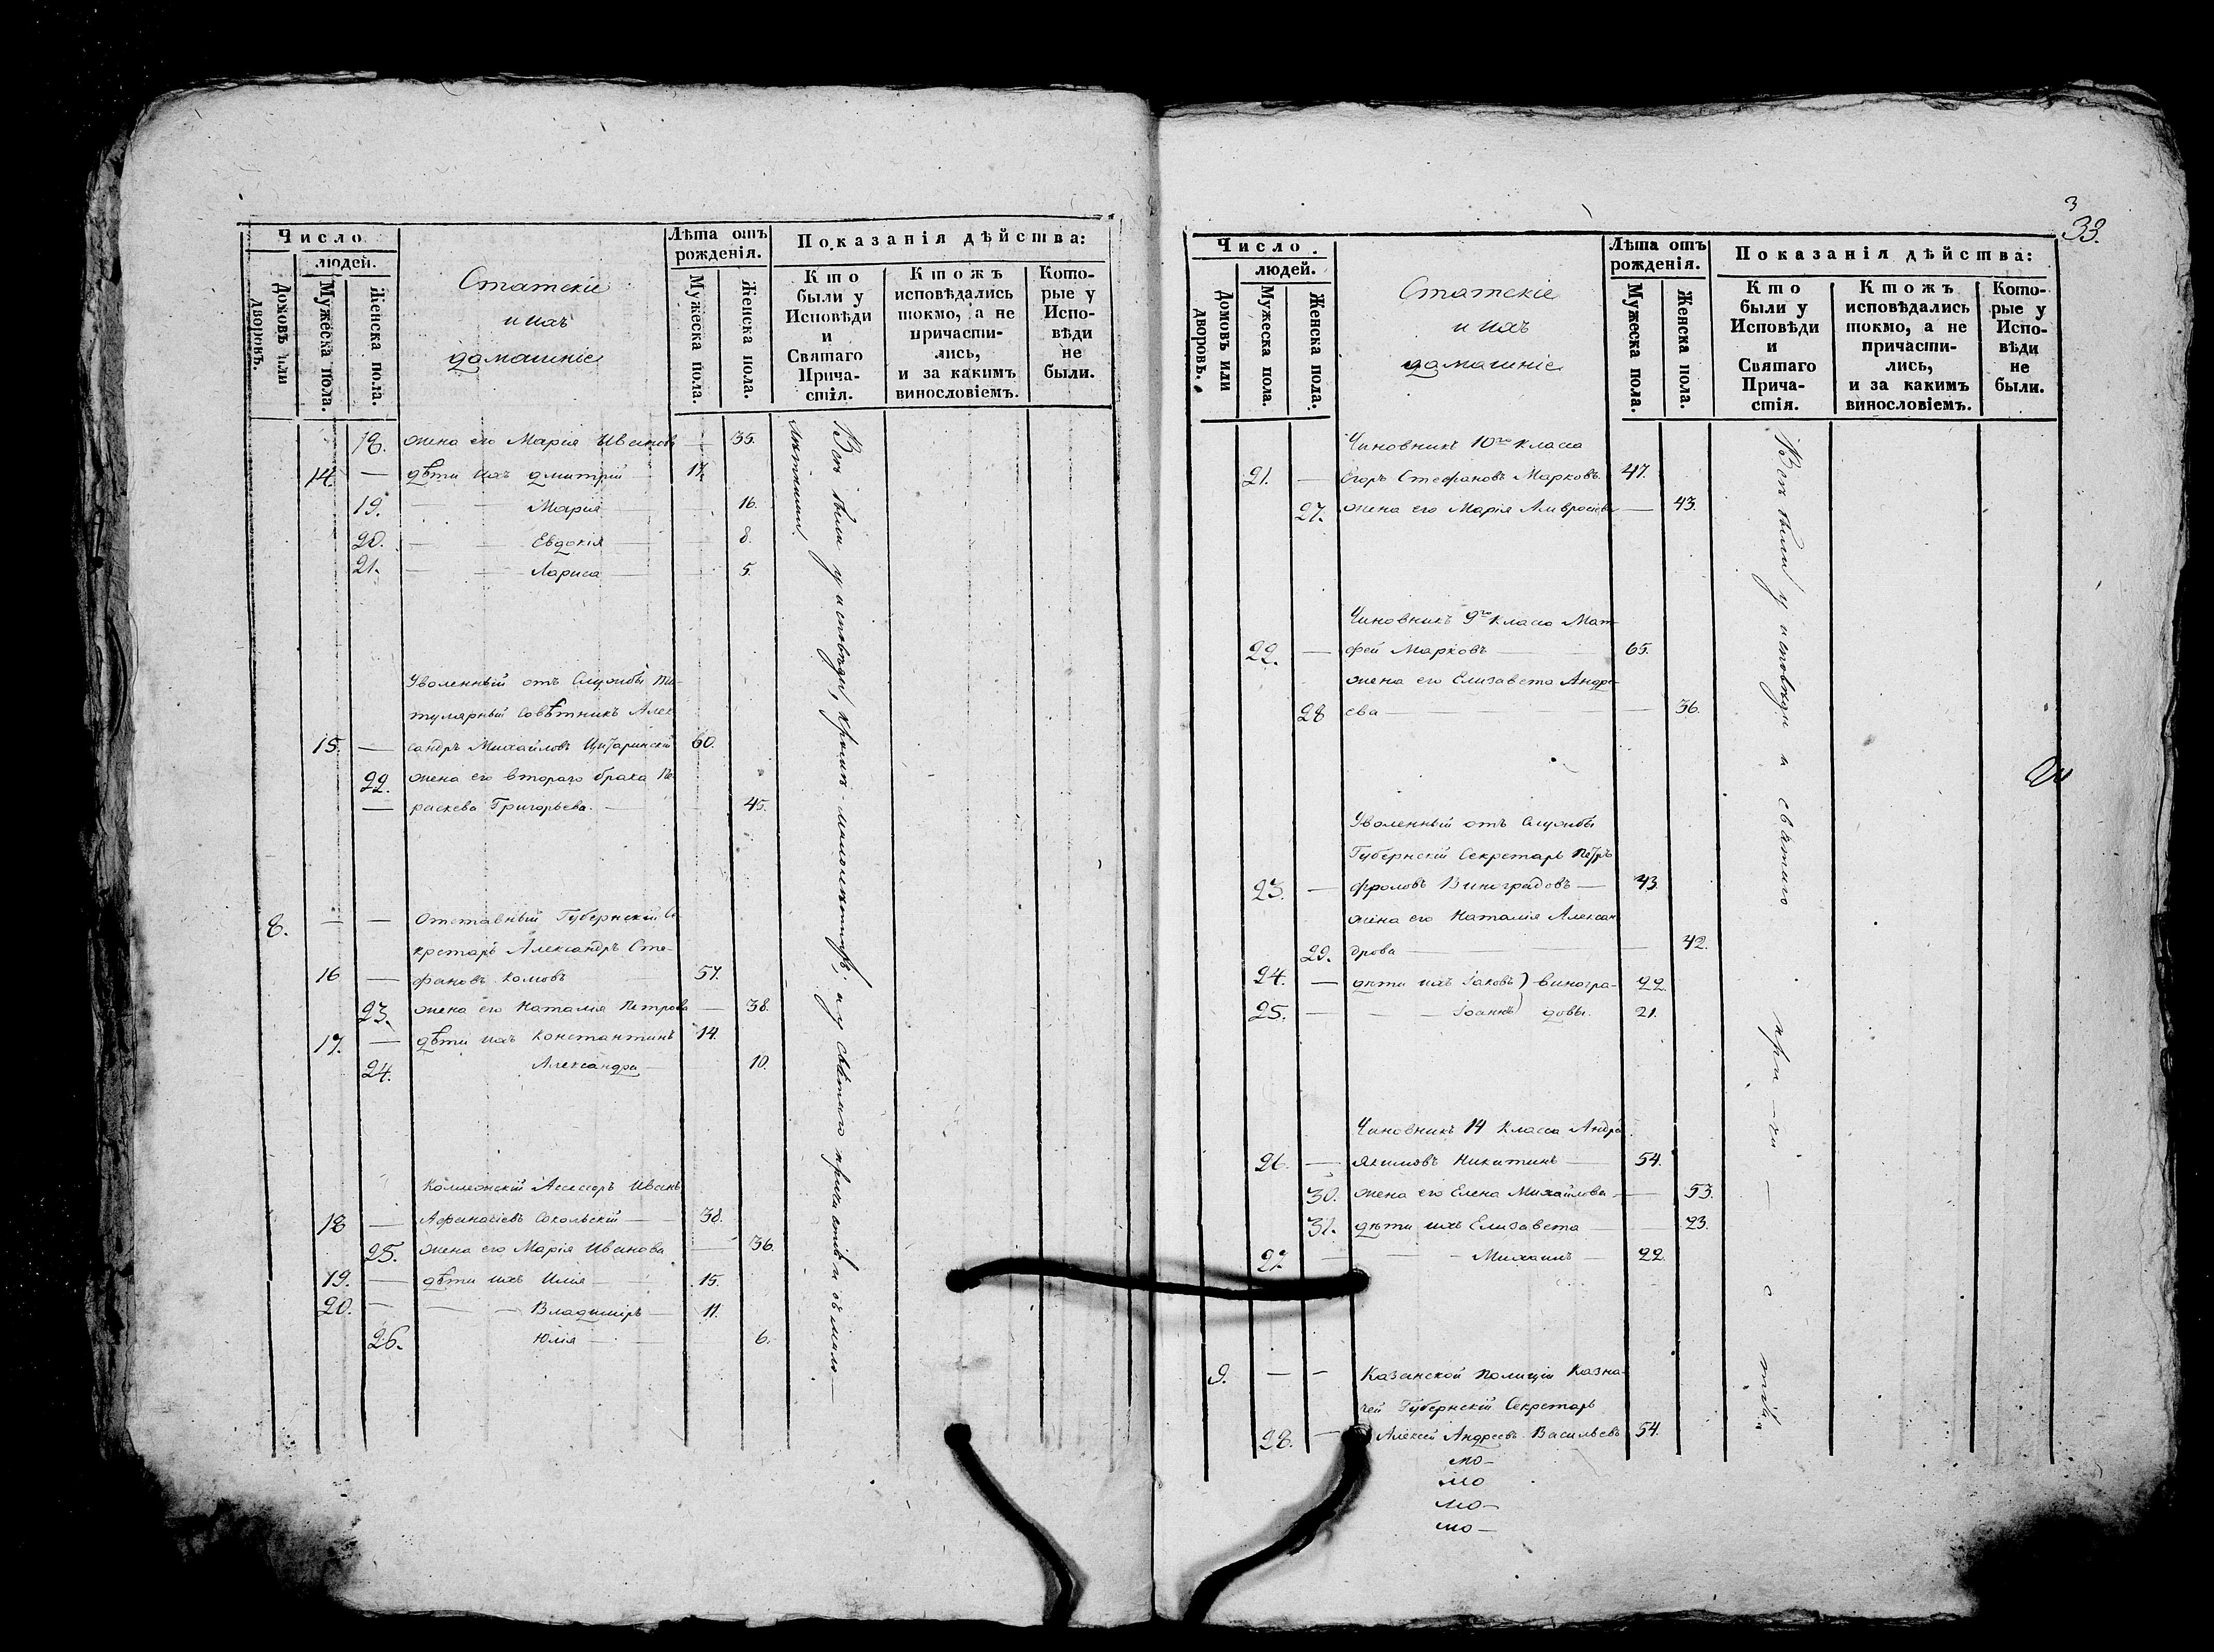 Число
людей.
Домовъ или дворовъ.
Мужеска пола.
Женска пола.
Статскіе
и ихъ
домашніе
Лѣта отъ рожденія.
Мужеска пола.
Женска пола.
Показанія дѣйства:
Кто были у Исповѣди и Святаго Прича-стія.
Ктожъ исповѣдались токмо, а не причасти-лись, и за какимъ винословіемъ.
Кото-рые у Испо-вѣди не были.
18. жена его Марія Иванов — 35.
14 — дѣти ихъ Дмитрій 17.
19. — — Марія — 16.
20. — — Евдокія — 8.
21. — — Лариса — 5.
Уволенный отъ Службы Ти-
тулярный Совѣтникъ Алек
15. — сандръ Михайловъ 60.
22. жена его втораго брака Па
— раскева Григорьева. — 45.
8. — — Отставный Губернскій Се
кретарь Александръ Сте-
16 — фановъ Комовъ 57.
23. жена его Наталія Петрова — 38.
17. — дѣти ихъ Константинъ 14.
24. Александра — 10.
Коллежскій Асессоръ Иванъ
18 — Афанасіевъ Сокольскій — 38.
25. жена его Марія Иванова — 36.
19. — дѣти ихъ Илія — 15.
20. — — — Владиміръ — 11.
26. Юлія — 6.
Всѣ были у исповѣди, кромѣ малолѣтнихъ, и у святаго причастія и съ мало-
лѣтними,
3
33.
Число
людей.
Домовъ или дворовъ.
Мужеска пола.
Женска пола.
Статскіе
и ихъ
домашніе
Лѣта отъ рожденія.
Мужеска пола.
Женска пола.
Показанія дѣйства:
Кто были у Исповѣди и Святаго Прича-стія.
Ктожъ исповѣдались токмо, а не причасти-лись, и за какимъ винословіемъ.
Кото-рые у Испо-вѣди не были.
Чиновникъ 10го класса
21. — Егоръ Стефановъ Марковъ. 47.
27. жена его Марія Амвросіева — 43.
Чиновникъ 9го класса Мат-
22. — фей Марковъ — 65.
жена его Елизавета Андре-
28 ева — — 36.
Уволенный отъ Службы
Губернскій Секретарь Петръ
23. — Фроловъ Виноградовъ — 43.
жена его Наталія Алексан
29. дрова — — 42.
24. — дѣти ихъ Іаковъ) Виногра- 22.
25. — — — Іоаннъ) довы. 21.
Чиновникъ 14 класса Андрей
26. — Якимовъ Никитинъ — 54.
30. жена его Елена Михайлова — 53.
31. дѣти ихъ Елизавета — 23.
27 — — — Михаилъ — 22.
9. — — Казанской Полиціи Казна-
чей Губернскій Секретарь
28. — Алексей Андреевъ Васильевъ 54.
Всѣ были у исповѣди и святаго при-ча-стія